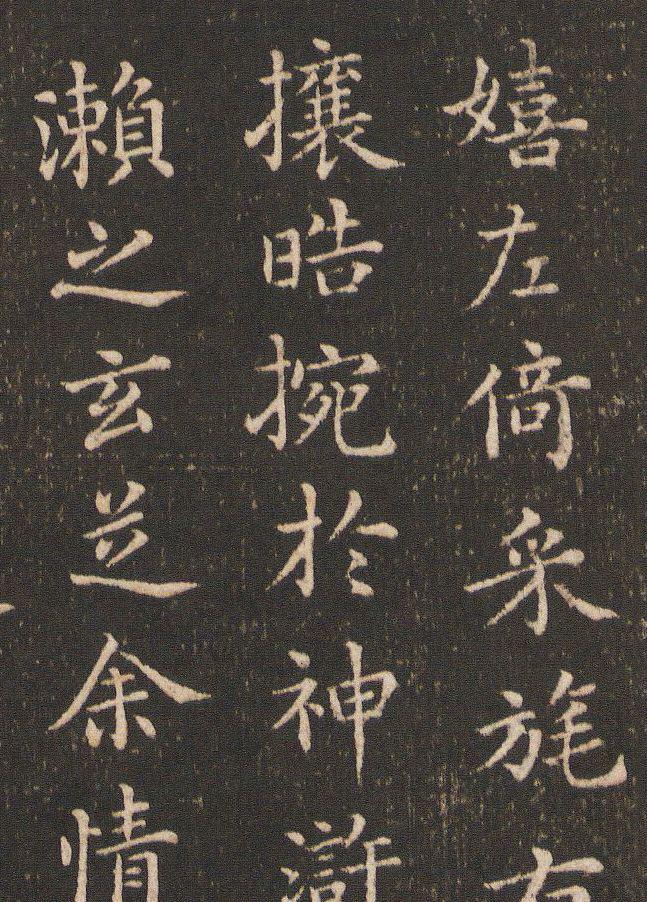 嬉左倚采旄右
攘皓捥於神滸
瀬之玄芝余情